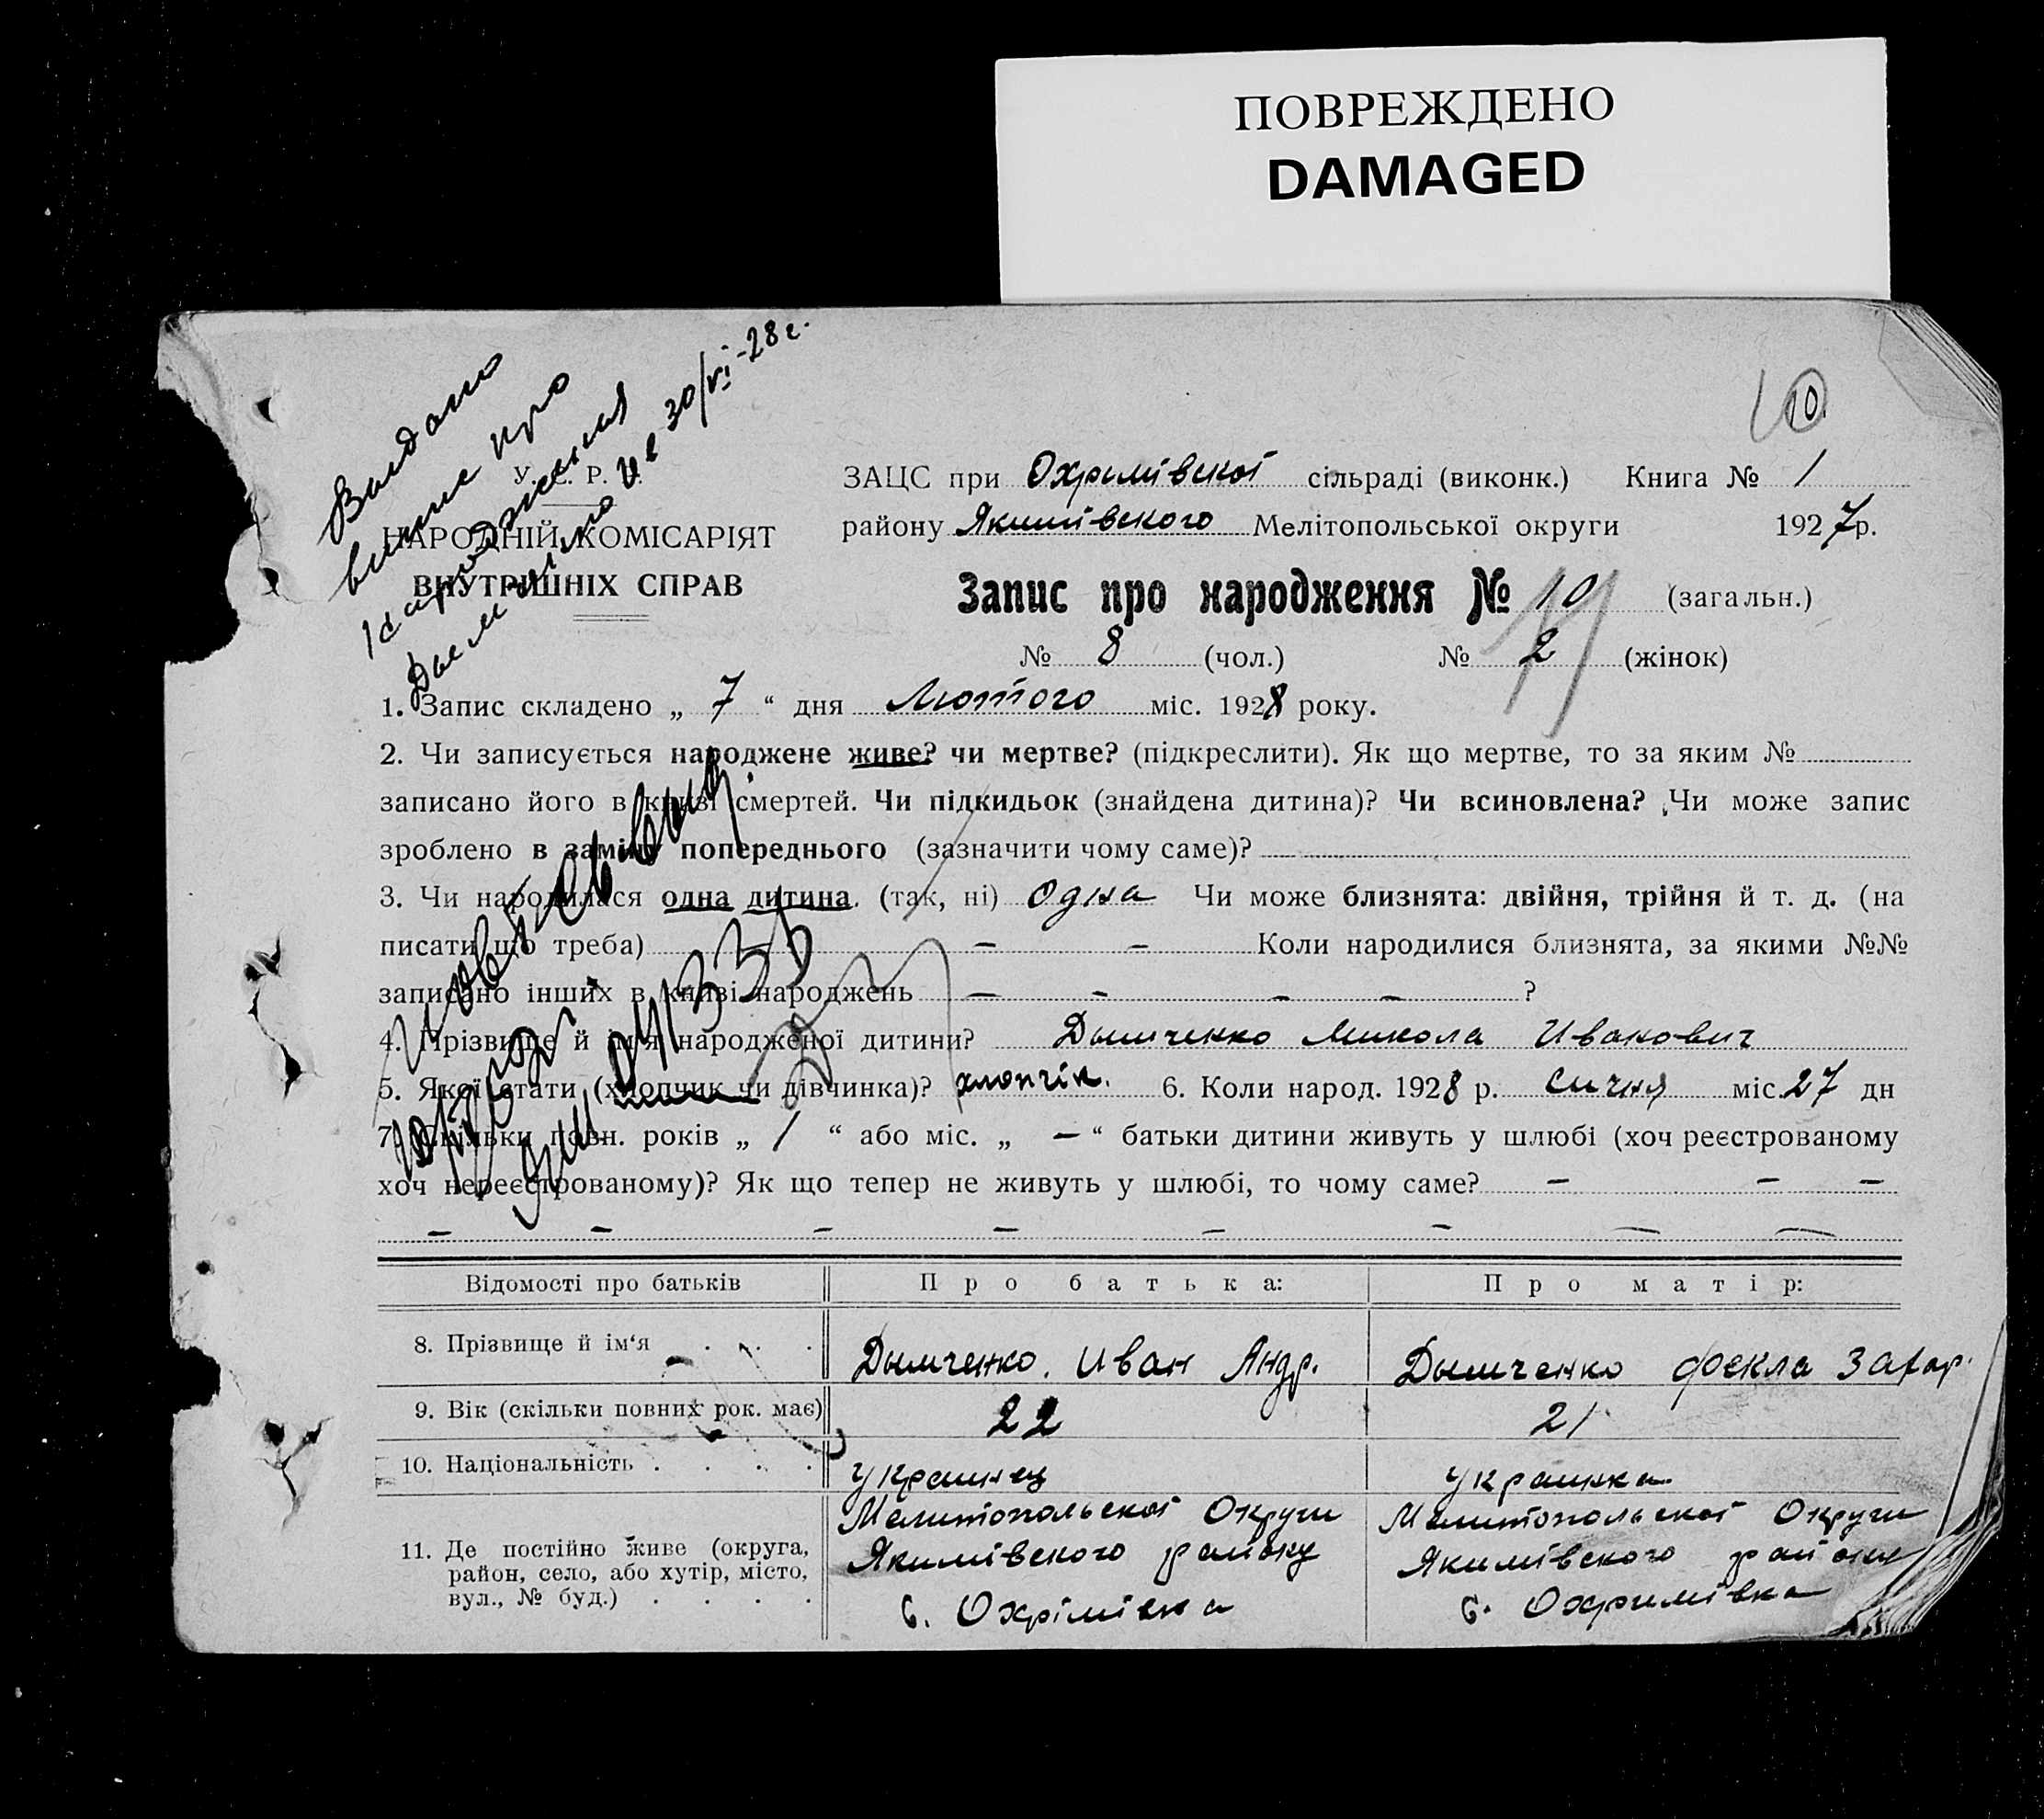 ПОВРЕЖДЕНО
DAMAGED
10.
Выдано
виписе про
народження
Дымченко
30/VI-28 г.
У. С. Р. Р.
НАРОДНІЙ КОМІСАРІЯТ
ВНУТРІШНІХ СПРАВ
ЗАЦС при Охримівскої сільраді (виконк.) Книга № 1
району Якимівского Мелітопольської округи 1927р.
Запис про народження № 10 (загальн.)
№ 8 (чол.) № 2 (жінок)
1. Запис складено „ 7 “ дня Лютого міс. 1928 року.
2. Чи записується народжене живе? чи мертве? (підкреслити). Як що мертве, то за яким №
записано його в книзі смертей. Чи підкидьок (знайдена дитина)? Чи всиновлена? Чи може запис
зроблено в заміну попереднього (зазначити чому саме)?
3. Чи народилася одна дитина. (так, ні) одна Чи може близнята: двійня, трійня й т. д. (на
писати що треба) — — Коли народилися близнята, за якими №№
записано інших в книзі народжень — - — — ?
4. Прізвище й ім'я народженої дитини? Дымченко Микола Иванович
5. Якої стати (хлопчик чи дівчинка)? хлопчік. 6. Коли народ. 1928 р. сичня міс. 27 дн
7. Скільки повн. років „ 1 “ або міс. „ — “ батьки дитини живуть у шлюбі (хоч реєстрованому
хоч нереєстрованому)? Як що тепер не живуть у шлюбі, то чому саме? — — —
— — — — — — — —
Відомості про батьків Про батька: Про матір:
8. Прізвище й ім‘я Дымченко. Иван Андр. Дымченко Фекла Захар.
9. Вік (скільки повних рок. має) 22 21
10. Національність украинец украинка
11. Де постійно живе (округа, район, село, або хутір, місто, вул., № буд.)
Мелитопольскої Округи Мелитопольскої Округи
Якимівского району Якимівского району
с. Охрімівка с. Охримівка